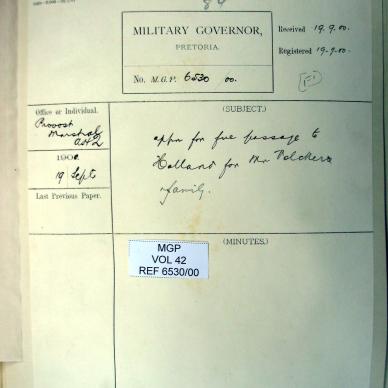 84
MILITARY GOVERNOR,
PRETORIA.
No. M.G.P. 6530 00.
Received 19.9.00.
Registered 19.9.00.
[F]
Office or Individual.
Provost
Marshal
1900.
19 Sept
Last Previous Paper.
(SUBJECT.)
appn for free passage to
Holland for Mr
family.
(MINUTES.)
MGP
VOL 42
REF 6530/00